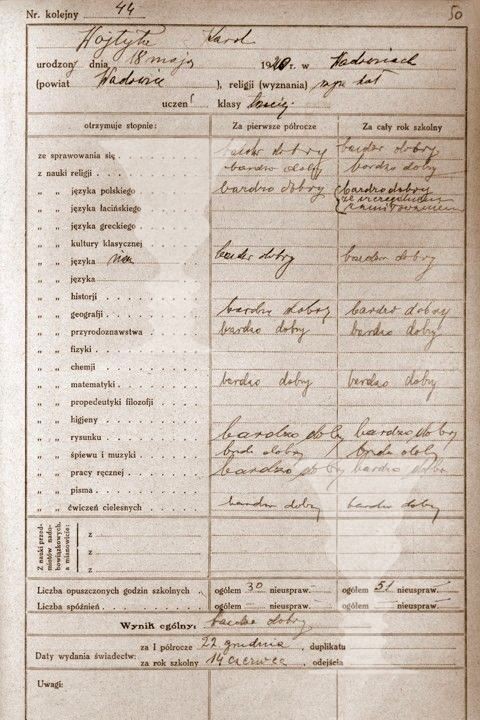 Nr. kolejny 44 50
Wojtyła Karol
urodzony dnia 18 maja 1920 r. w Wadowicach
(powiat Wadowice ), religji (wyznania) rzym. kat
uczeń klasy trzeciej
otrzymuje stopnie: Za pierwsze półrocze Za cały rok szkolny
ze sprawowania się bardzo dobry bardzo dobry
z nauki religji bardzo dobry bardzo dobry
„ „ języka polskiego bardzo dobry bardzo dobry
ze szczególnem
zamiłowaniem
„ „ języka łacińskiego
„ „ języka greckiego
„ „ kultury klasycznej
„ „ języka niem bardzo dobry bardzo dobry
„ „ języka
„ „ historji
„ „ geografji bardzo dobry bardzo dobry
„ „ przyrodoznawstwa bardzo dobry bardzo dobry
„ „ fizyki
„ „ chemji
„ „ matematyki bardzo dobry bardzo dobry
„ „ propedeutyki filozofji
„ „ higjeny
„ „ rysunku bardzo dobry bardzo dobry
„ „ śpiewu i muzyki bardzo dobry bardzo dobry
„ „ pracy ręcznej bardzo dobry bardzo dobry
„ „ pisma
„ „ ćwiczeń cielesnych bardzo dobry bardzo dobry
Z nauki przed-
miotów nado-
bowiązkowych,
a mianowicie:
z
z
z
Liczba opuszczonych godzin szkolnych ogółem 30 nieuspraw. — ogółem 51 nieuspraw. —
Liczba spóźnień ogółem — nieuspraw. — ogółem — nieuspraw. —
Wynik ogólny: bardzo dobry
Daty wydania świadectw:
za I półrocze 22 grudnia , duplikatu
za rok szkolny 14 czerwca , odejścia
Uwagi: